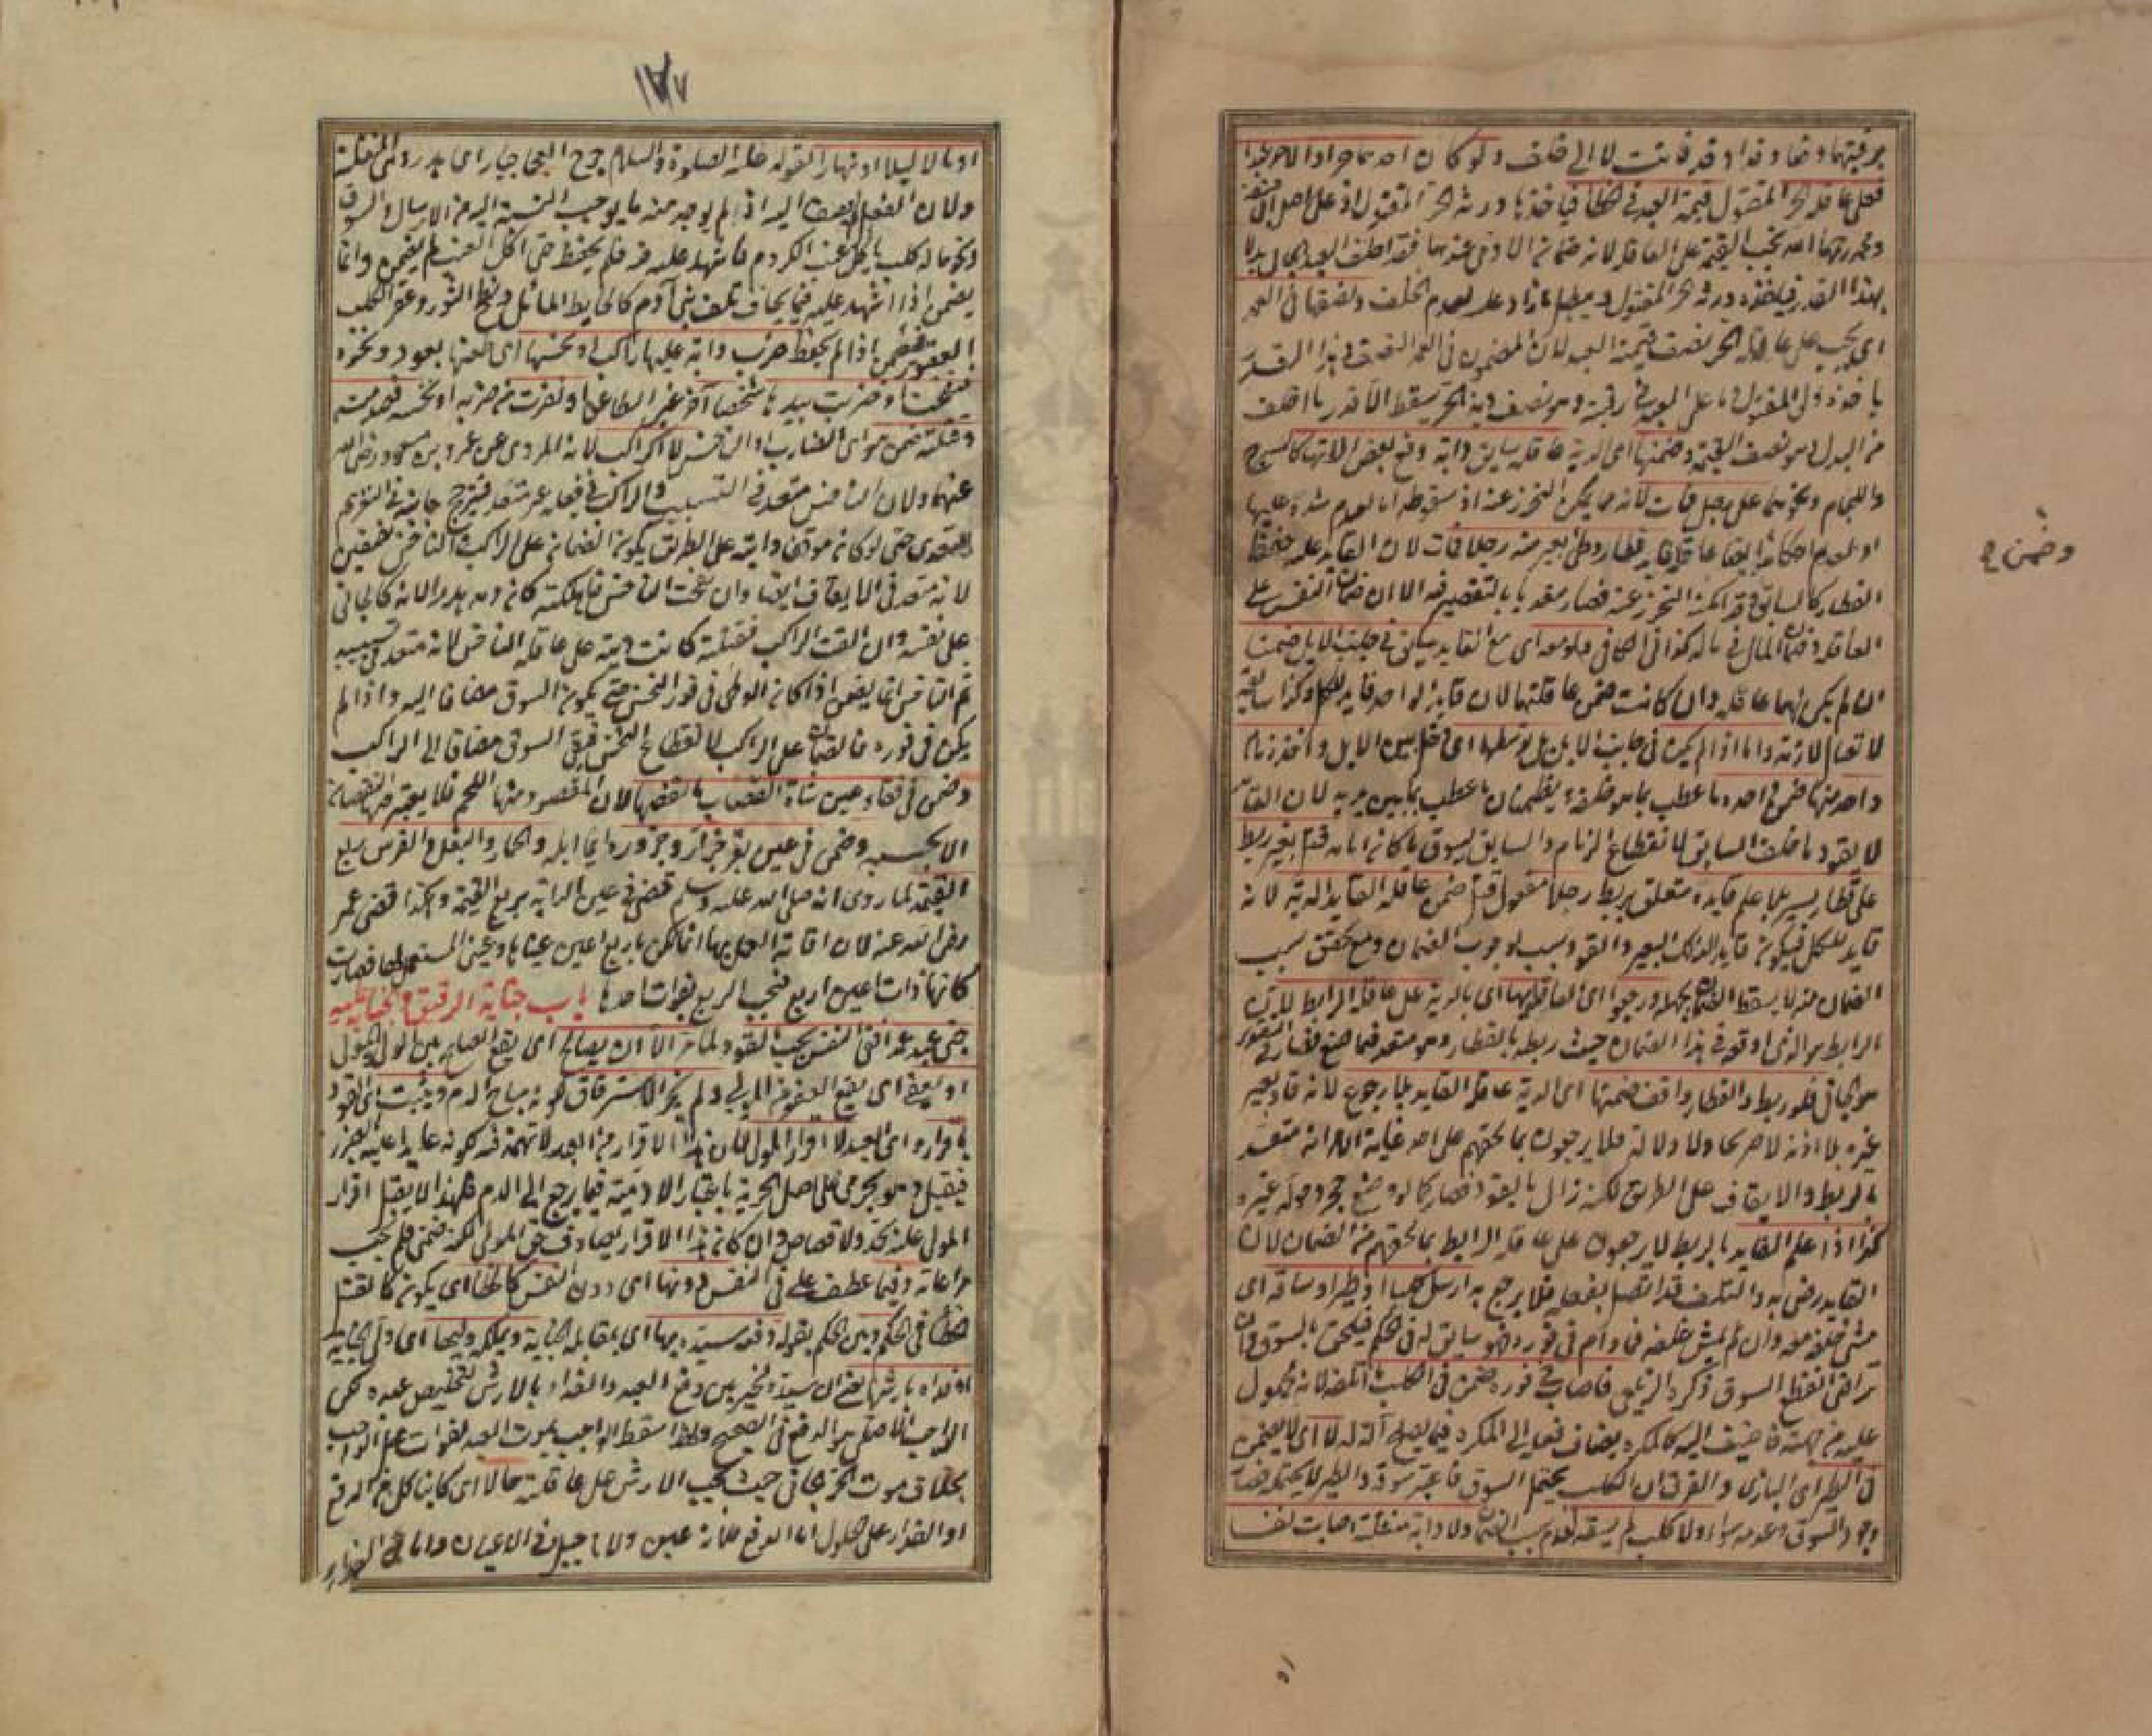 برقبتهما دفعا وفداء وقد فاتت لا إلى خلف ولو كان احدهما حرا والآخر عبدا
فعلى عاقلة الحر المقتول قيمة العبد في الخطأ فيأخذها ورثة الحر المقتول اذ على اصل
تجب القيمة على العاقلة لانه ضمان الآدمي عندهما فقد اخلف العبد الجاني بدلا
بهذا القدر فيأخذه ورثة الحر المقتول ويبطل ما زاد عليه لعدم الخلف ونصفها في العمد
اي يجب على عاقلة الحر نصف قيمة العبد لان المضمون في العمد النصف وهذا القدر
يأخذه ولي المقتول وما على العبد في رقبته وهو نصف دية الحر يسقط الا قدر ما اخلف
من البدل وهو نصف القيمة وضمنها اي الدية عاقلة سايق دابة وقع بعض الاتها كالسرج
واللجام ونحوهما على رجل فمات لانه مما يمكن التحرز عنه اذ سقوطه اما لعدم شده عليها
او لعدم احكامه ايضا عاقلة قايد قطار وطئ بعير منه رجلا فمات لان القايد عليه حفظ
القطار كالسايق وقد امكنه التحرز عنه فصار متعديا بالتقصير فيه الا ان ضمان النفس على
العاقلة وضمان المال في ماله كذا في الكافي ولو معه اي مع القايد سايق في جانب الابل ضمنت
ان لم يكن لهما عاقلة وان كانت ضمن عاقلتهما لان قايد الواحد قايد للكل وكذا سايقه
لاتصال الازمة واما اذا لم يكن في جانب الابل بل توسطها اي دخل بين الابل واخذ زمام
واحد منها ضمن وحده ما عطب بما هو خلفه ويضمنان ما عطب بما بين يديه لان القايد
لا يقود ما خلف السايق لانقطاع الزمام والسايق يسوق ما كان امامه قتل بعير ربط
على قطار يسير بلا علم قايده متعلق بربط رجلا مفعول قتل ضمن عاقلة القايد الدية لانه
قايد للكل فيكون قايدا لذلك البعير والقود سبب لوجوب الضمان ومع تحقق سبب
الضمان منه لا يسقط الضمان بجهله ورجعوا اي العاقلة بها اي بالدية على عاقلة الرابط لان
الرابط هو الذي اوقعه في هذا الضمان حيث ربطه بالقطار وهو متعد فيما صنع فصار في التقدير
هو الجاني فلو ربط والقطار واقف ضمنها اي الدية عاقلة القايد بلا رجوع لانه قاد بعير
غيره بلا اذنه لا صريحا ولا دلالة فلا يرجعون بما لحقهم على احد غاية الامر انه متعد
بالربط والايقاف على الطريق لكنه زال بالقود فصار كما لو وضع حجرا وحوله غيره
كذا اذا علم القايد بالربط لا يرجعون على عاقلة الرابط بما لحقهم من الضمان لان
القايد رضي به والتلف قد اتصل بفعله فلا يرجع به ارسل كلبا او طيرا وساقه اي
مشى خلفه معه وان لم يمش خلفه فما دام في فوره فهو سايق له في الحكم فيلحق بالسوق وان
تراخى انقطع السوق ذكره الزيلعي فاصاب في فوره ضمن في الكلب ما اتلفه لانه محمول
عليه من جهته فاضيف اليه كالمكره يضاف فعله الى المكره فيما يصلح آلة له لا اي لا يضمن
في الطير اي البازي والفرق ان الكلب يحتمل السوق فاعتبر سوقه والطير لا يحتمله فصار
وجود السوق وعدمه سواء ولا كلب لم يسقه لعدم سبب الضمان ولا دابة منفلتة اصابت نفسا
وضمن
١٨٧
او مالا ليلا او نهارا لقوله عليه الصلوة والسلام جرح العجماء جبار اي هدر وهي المنفلتة
ولان الفعل لا يضاف اليه اذ لم يوجد منه ما يوجب النسبة اليه من الارسال والسوق
ونحو ماله كلب يأكل عنب الكروم فاشهد عليه فيه فلم يحفظ حتى اكل العنب لم يضمن وانما
يضمن اذا اشهد عليه فيما يخاف تلف بني آدم كالحايط المائل ونطح الثور وعقر الكلب
العقور فيضمن اذا لم يحفظ ضرب دابة عليها راكب او نخسها اي طعنها بعود ونحوه
فنفحت او ضربت بيدها شخصا آخر غير الطاعن او نفرت من ضربه او نخسه فصدمته
وقتلته ضمن هو اي الضارب او الناخس لا الراكب لانه المروي عن عمر وابن مسعود رضي الله
عنهما ولان الناخس متعد في التسبيب والراكب في فعله غير متعد فيترجح جانبه في التغريم
للتعدي حتى لو كان موقفا دابته على الطريق يكون الضمان على الراكب والناخس نصفين
لانه متعد في الايقاف ايضا وان نفحت الناخس فاهلكته كان دمه هدرا لانه كالجاني
على نفسه وان القت الراكب فقتلته كانت ديته على عاقلة الناخس لانه متعد في تسبيبه
ثم الناخس انما يضمن اذا كان الوطئ في فور النخس حتى يكون السوق مضافا اليه واذا لم
يكن في فوره فالضمان على الراكب لانقطاع النخس فبقي السوق مضافا الى الراكب
وضمن في فقاء عين شاة القصاب ما نقصها لان المقصود منها اللحم فلا يعتبر فيها النقصان
الا بحسبه وضمن في عين بقر جزار وجزوره اي ابله والحمار والبغل والفرس ربع
القيمة لما روي انه صلى الله عليه وسلم قضى في عين الدابة بربع القيمة وهكذا قضى عمر
رضي الله عنه لان اقامة العمل بها انما تمكن باربع اعين عيناها وعينا المستعمل لها فصارت
كانها ذات اعين اربع فتجب الربع بفوات احدها باب جناية الرقيق والجناية عليه
جنى عبد عمدا في النفس يجب القود لما مر الا ان يصالح اي يقع الصلح بين المولى والولي
او يعفى اي يقع العفو من الولي ولم يجز الاسترقاق لانه مباح الدم ويثبت اي القود
باقراره اي العبد لا اقرار المولى لان هذا الاقرار من العبد لا تهمة فيه لكونه عايدا عليه بالضرر
فيقبل وهو يجري على اصل الحرية باعتبار الآدمية فيما يرجع الى الدم فلهذا لا يقبل اقرار
المولى عليه بحد ولا قصاص وان كان هذا الاقرار يصادف حق المولى لكنه ضمني فلم يجب
مراعاته وفيما عطف على في النفس دونها اي دون النفس كالخطأ اي يكون كالقتل
خطأ في الحكم وبين الحكم بقوله دفعه سيده بها اي بمقابلة الجناية ويملكه وليها اي ولي الجناية
او فداه بارشها يعني ان سيده يخير بين دفع العبد والفداء بالارش لتخليص عبده لكن
الواجب الاصلي هو الدفع في الصحيح ولهذا سقط الواجب بموت العبد لفوات محل الواجب
بخلاف موت الحر الجاني حيث يجب الارش على عاقلته حالا اي كاينا كل من الدفع
او الفداء على الحلول اما الدفع فلانه عين ولا تأجيل في الاعيان واما